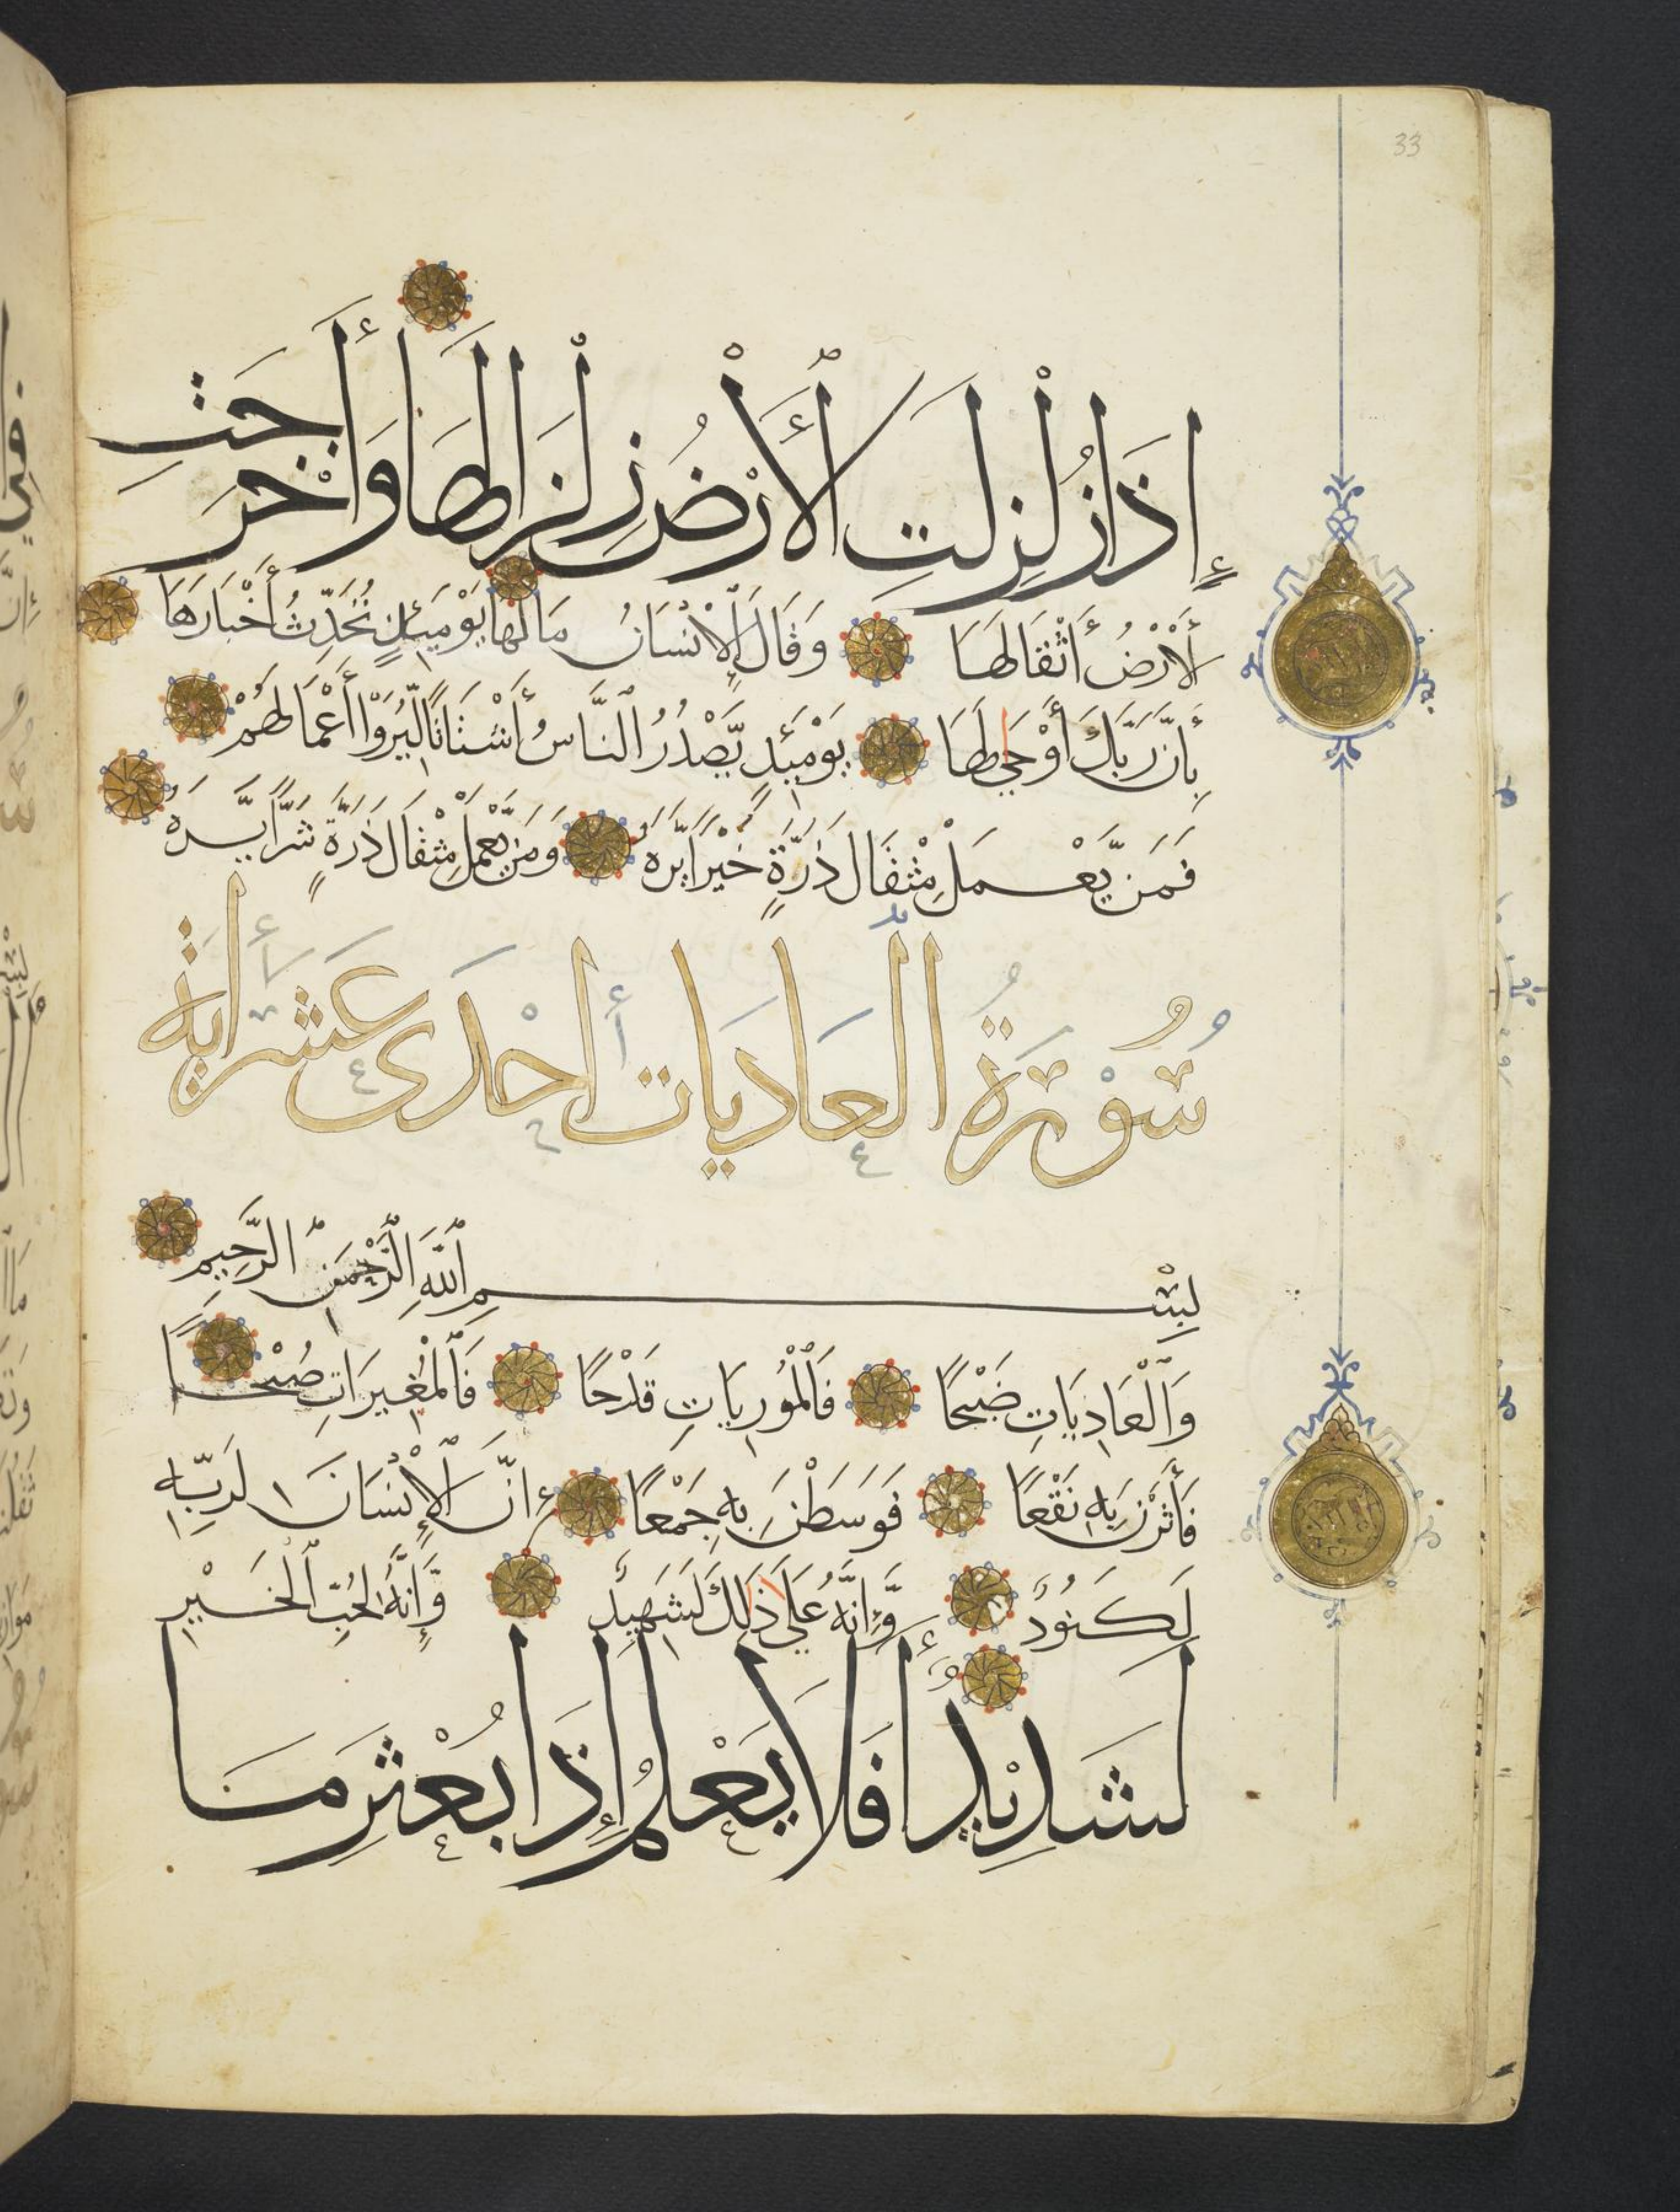 33
إِذَا زُلْزِلَتِ ٱلْأَرْضُ زِلْزَالَهَا وَأَخْرَجَتِ
ٱلْأَرْضُ أَثْقَالَهَا وَقَالَ ٱلْإِنْسَانُ مَا لَهَا يَوْمَئِذٍ تُحَدِّثُ أَخْبَارَهَا
بِأَنَّ رَبَّكَ أَوْحَىٰ لَهَا يَوْمَئِذٍ يَّصْدُرُ ٱلنَّاسُ أَشْتَاتًا لِّيُرَوْا أَعْمَالَهُمْ
فَمَن يَّعْمَلْ مِثْقَالَ ذَرَّةٍ خَيْرًا يَّرَهُ وَمَن يَّعْمَلْ مِثْقَالَ ذَرَّةٍ شَرًّا يَّرَهُ
سُوْرَةُ ٱلْعَادِيَات أحْدَى عَشَر أيَة
بِسْمِ ٱللَّهِ ٱلرَّحْمَٰنِ ٱلرَّحِيمِ
وَٱلْعَادِيَاتِ ضَبْحًا فَٱلْمُورِيَاتِ قَدْحًا فَٱلْمُغِيرَاتِ صُبْحًا
فَأَثَرْنَ بِهِ نَقْعًا فَوَسَطْنَ بِهِ جَمْعًا إِنَّ ٱلْإِنْسَانَ لِرَبِّهِ
لَكَنُودٌ وَّإِنَّهُ عَلَىٰ ذَٰلِكَ لَشَهِيدٌ وَّإِنَّهُ لِحُبِّ ٱلْخَيْرِ
لَشَدِيْدٌ أَفَلَا يَعْلَمُ إِذَا بُعْثِرَ مَا